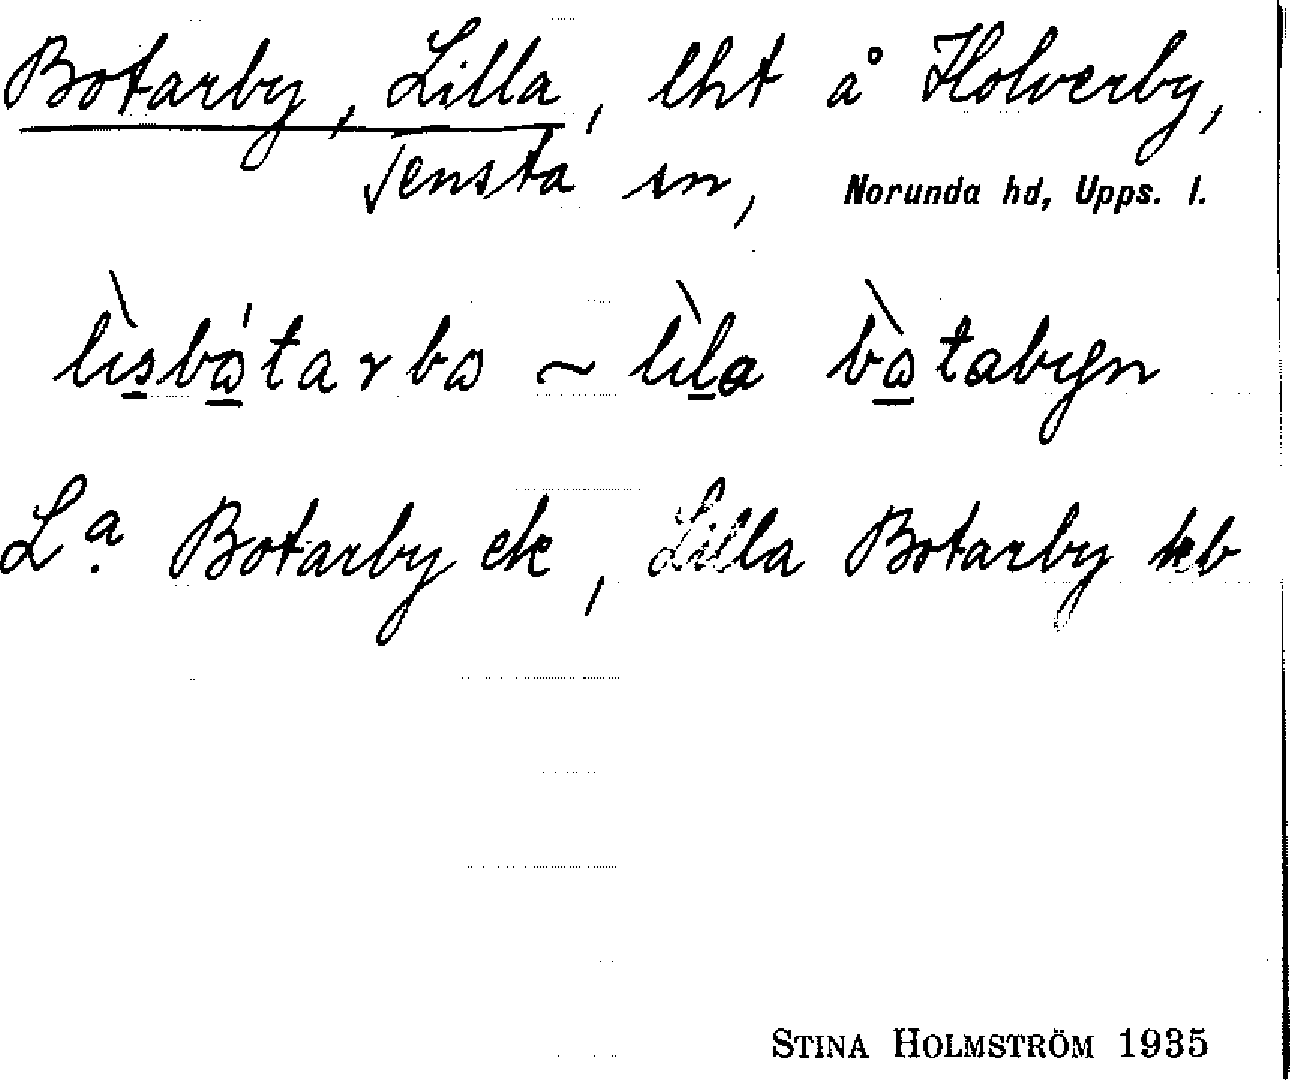 Botarby, Lilla, lht å Holverby,
Tensta sn, Norunda hd, Upps. l.
lìsbátarbɷ ~ lìla bɷ̀tabyn
L.ª Botarby ek, Lilla Botarby kb
STINA HOLMSTRÖM 1935